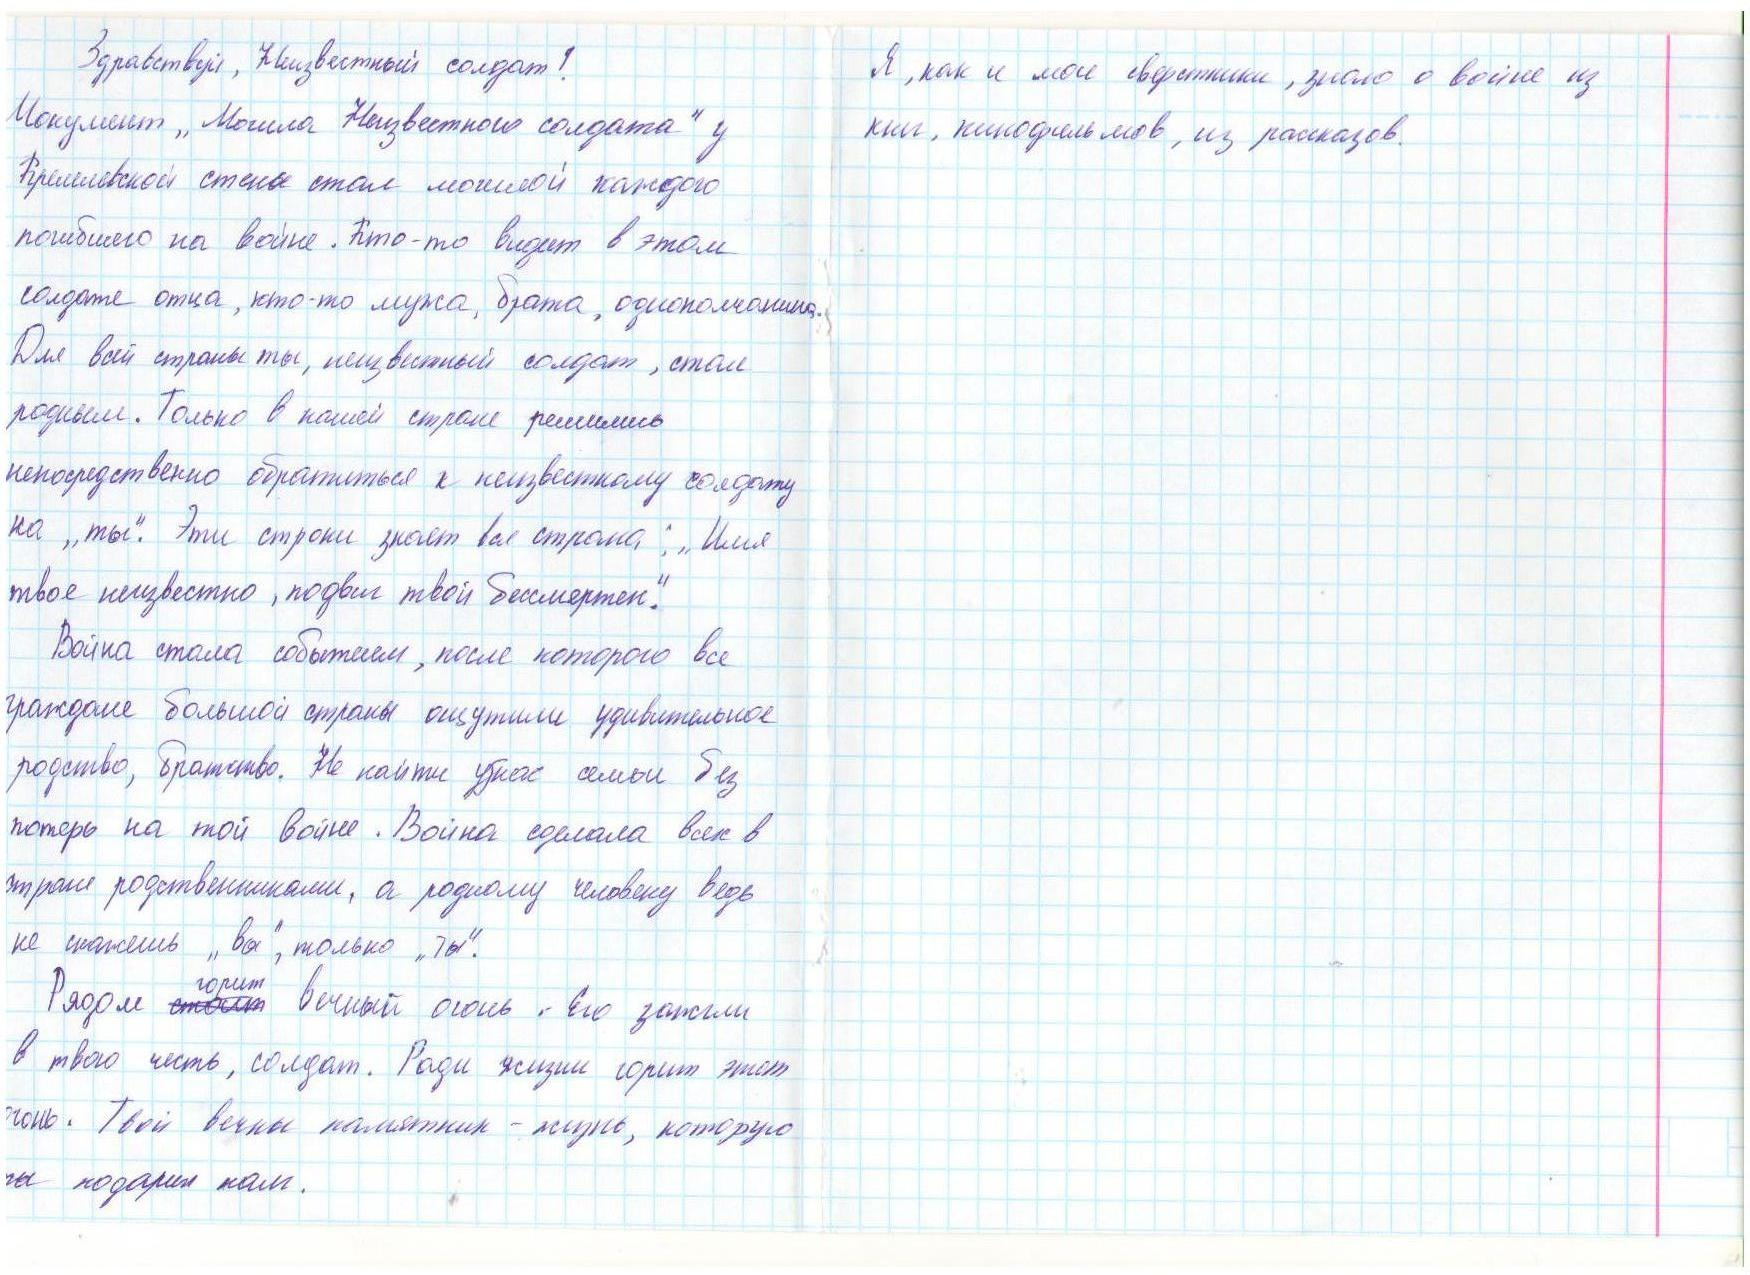 Здравствуй, Неизвестный солдат!
Монумент „Могила Неизвестного солдата" у
Кремлевской стены стал могилой каждого
погибшего на войне. Кто-то видит в этом
солдате отца, кто-то мужа, брата, однополчанина.
Для всей страны ты, неизвестный солдат, стал
родным. Только в нашей стране решились
непосредственно обратиться к неизвестному солдату
на „ты". Эти строки знает вся страна: „Имя
твое неизвестно, подвиг твой бессмертен."
Война стала событием, после которого все
граждане большой страны ощутили удивительное
родство, братство. Не найти у нас семьи без
потерь на той войне. Война сделала всех в
стране родственниками, а родному человеку ведь
не скажешь „вы", только „ты".
Рядом горит вечный огонь. Его зажгли
в твою честь, солдат. Ради жизни горит этот
огонь. Твой вечны памятник - жизнь, которую
ты подарил нам.
Я, как и мои сверстники, знаю о войне из
книг, кинофильмов, из рассказов.